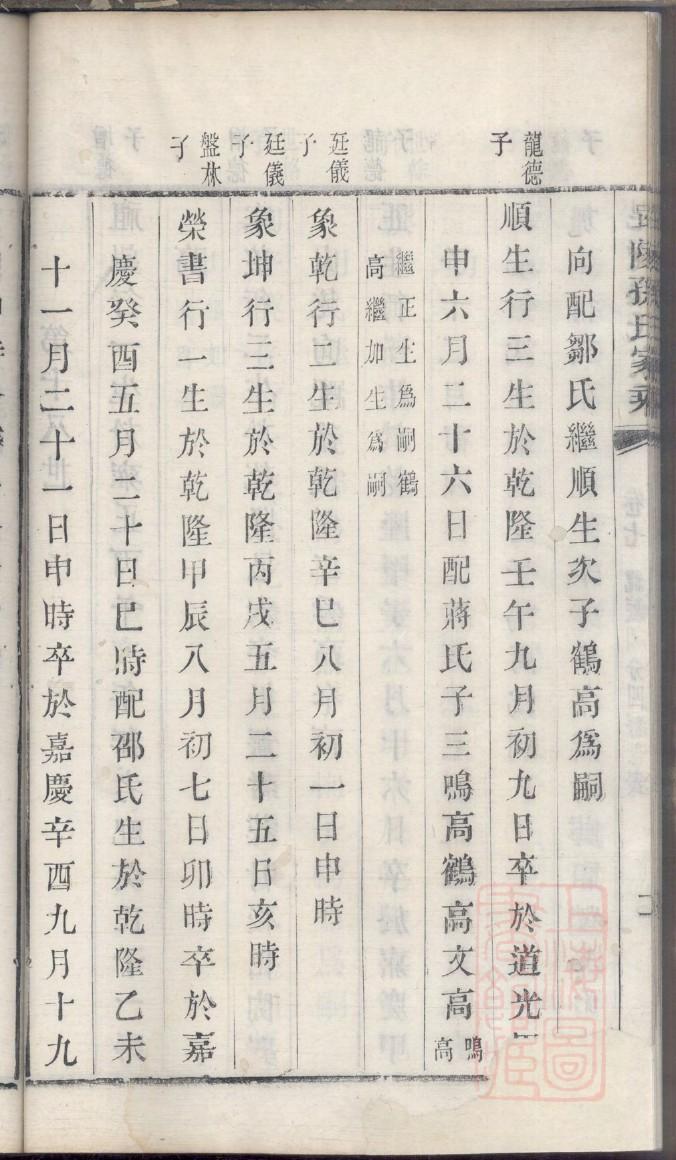 毘陵孫氏家乘
卷七
向配鄒氏繼順生次子鶴高爲嗣
龍德
子
順生行三生於乾隆壬午九月初九日卒於道光
申六月二十六日配蔣氏子三鳴高鶴高文高鳴
高
繼正生爲嗣鶴
高繼加生爲嗣
廷儀
子
象乾行二生於乾隆辛巳八月初一日申時
廷儀
子
象坤行三生於乾隆丙戌五月二十五日亥時
盤林
子
榮書行一生於乾隆甲辰八月初七日卯時卒於嘉
慶癸酉五月二十日巳時配邵氏生於乾隆乙未
十一月二十一日申時卒於嘉慶辛酉九月十九